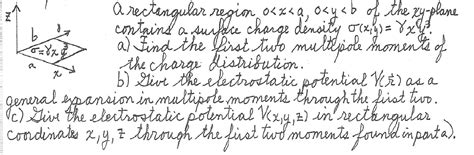 A rectangular region 0<x<a, 0<y<b of the xy-plane
contains a surface charge density σ(x,y)=γxy².
a) Find the first two multipole moments of
the charge distribution.
b) Give the electrostatic potential V(r) as a
general expansion in multipole moments through the first two.
c) Give the electrostatic potential V(x,y,z) in rectangular
coordinates x, y, z through the first two moments found in part a).
z
b
y
a
x